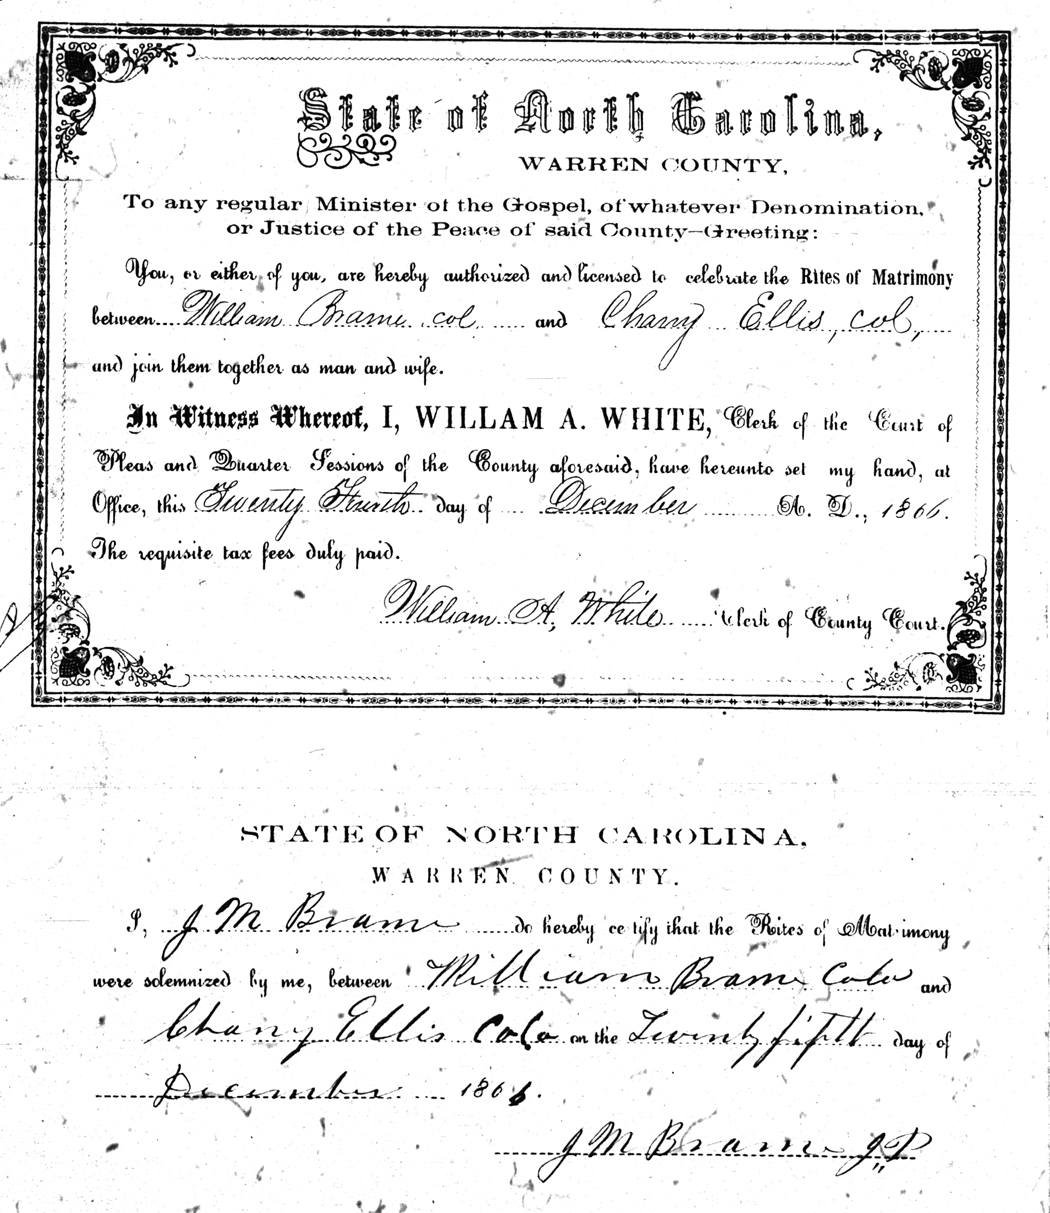 State of North Carolina,
WARREN COUNTY,
To any regular Minister of the Gospel, of whatever Denomination,
or Justice of the Peace of said County—Greeting:
You, or either of you, are hereby authorized and licensed to celebrate the Rites of Matrimony
between William Brame col and Chany Ellis, col,
and join them together as man and wife.
In Witness Whereof, I, WILLAM A. WHITE, Clerk of the Court of
Pleas and Quarter Sessions of the County aforesaid, have hereunto set my hand, at
Office, this Twenty Fourth day of December A. D., 1866.
The requisite tax fees duly paid.
William A, White Clerk of County Court.
STATE OF NORTH CAROLINA,
WARREN COUNTY.
I, J M Brame do hereby ce tify that the Rites of Mat imony
were solemnized by me, between William Brame Colo and
Chany Ellis Colo on the Twenty fifth day of
December 1866.
J M Brame J P